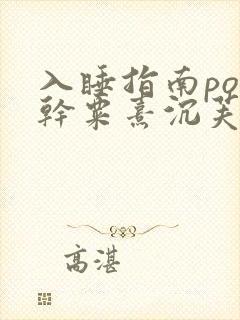 入睡指南po
幹粟熹沉芙
高湛